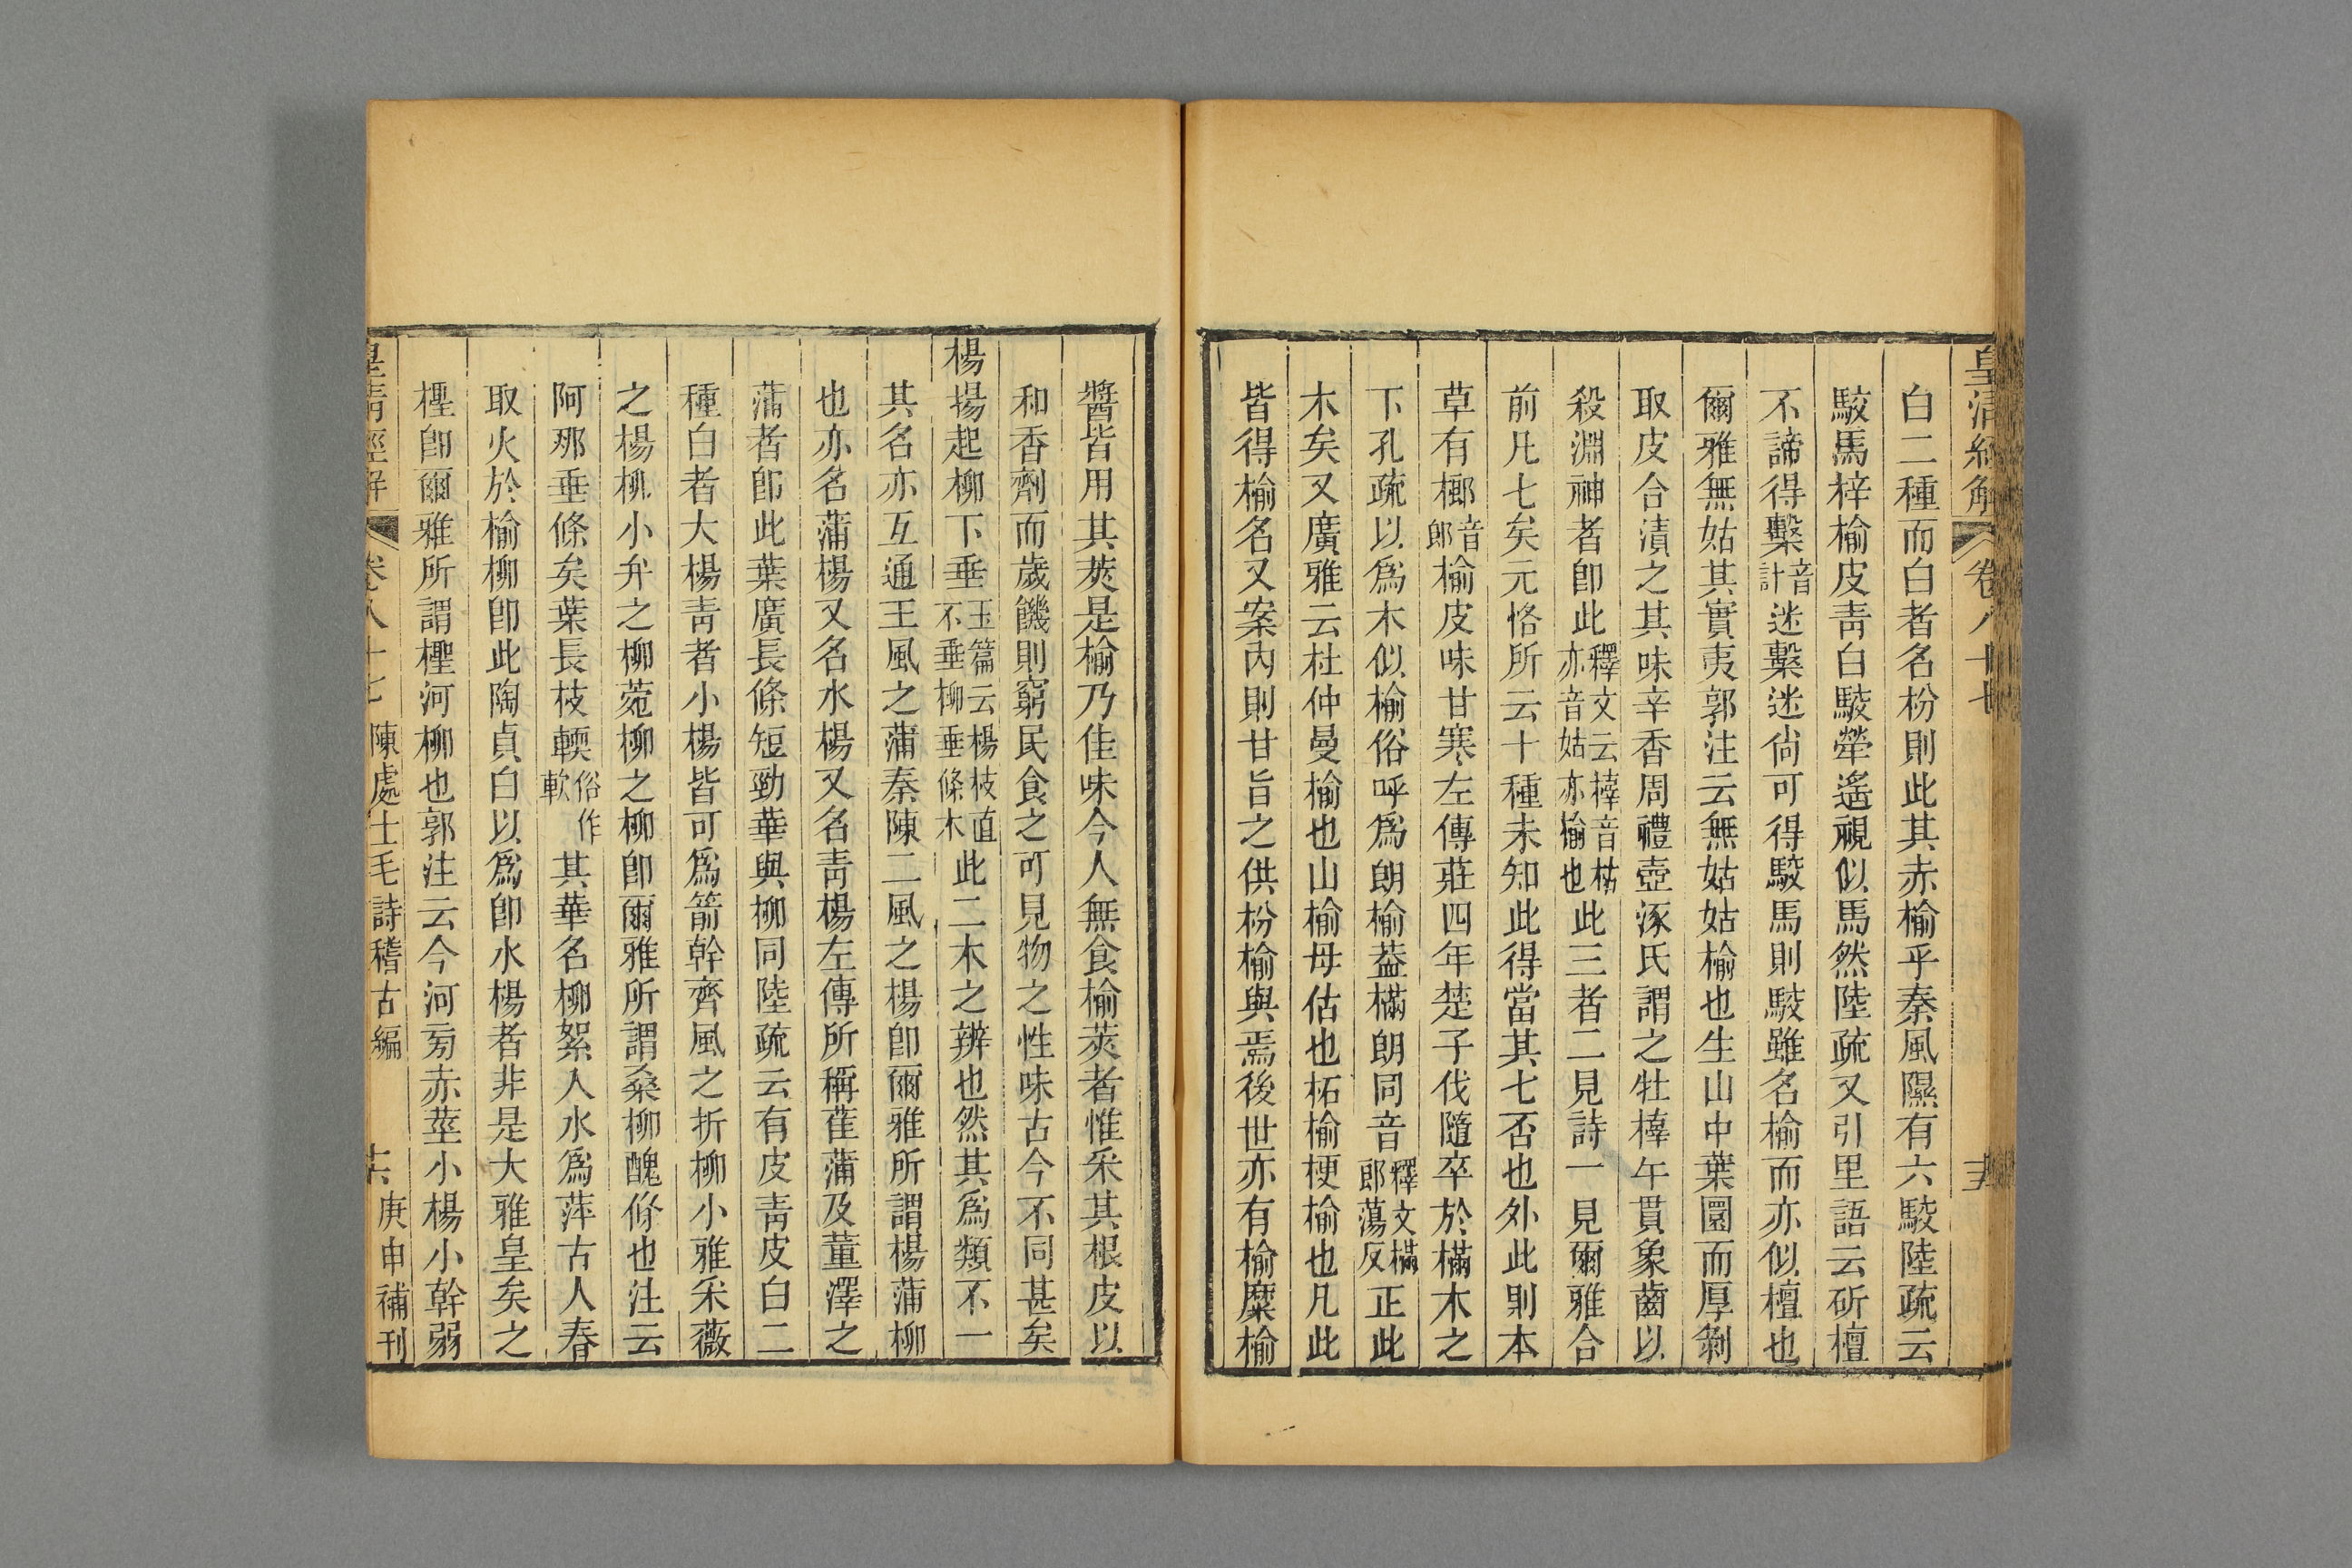 皇清經解 卷八十七 五
白二種而白者名枌則此其赤榆乎秦風隰有六駮陸疏云
駮馬梓榆皮青白駮犖遙視似馬然陸疏又引里語云斫檀
不諦得檕音計迷檕迷尚可得駮馬則駮雖名榆而亦似檀也
爾雅無姑其實夷郭注云無姑姑榆也生山中葉圜而厚剝
取皮合漬之其味辛香周禮壺涿氏謂之牡橭午貫象齒以
殺淵神者卽此釋文云橭音枯亦音姑亦榆也此三者二見詩一見爾雅合
前凡七矣元恪所云十種未知此得當其七否也外此則本
草有榔音郎榆皮味甘寒左傳莊四年楚子伐隨卒於樠木之
下孔疏以爲木似榆俗呼爲朗榆葢樠朗同音釋文樠郎蕩反正此
木矣又廣雅云杜仲曼榆也山榆母估也柘榆梗榆也凡此
皆得榆名又案內則甘旨之供枌榆與焉後世亦有榆糜榆
醬皆用其莢是榆乃佳味今人無食榆莢者惟采其根皮以
和香劑而歲饑則窮民食之可見物之性味古今不同甚矣
楊揚起柳下垂玉篇云楊枝直不垂柳垂條木此二木之辨也然其爲類不一
其名亦互通王風之蒲秦陳二風之楊卽爾雅所謂楊蒲柳
也亦名蒲楊又名水楊又名青楊左傳所稱萑蒲及董澤之
蒲者卽此葉廣長條短勁華與柳同陸疏云有皮青皮白二
種白者大楊青者小楊皆可爲箭幹齊風之折柳小雅采薇
之楊桺小弁之柳菀柳之柳卽爾雅所謂桑柳醜條也注云
阿那垂條矣葉長枝輭俗作軟其華名柳絮入水爲萍古人春
取火於榆柳卽此陶貞白以爲卽水楊者非是大雅皇矣之
檉卽爾雅所謂檉河柳也郭注云今河旁赤莖小楊小幹弱
皇清經解 卷八十七 陳處士毛詩稽古編 六 庚申補刊